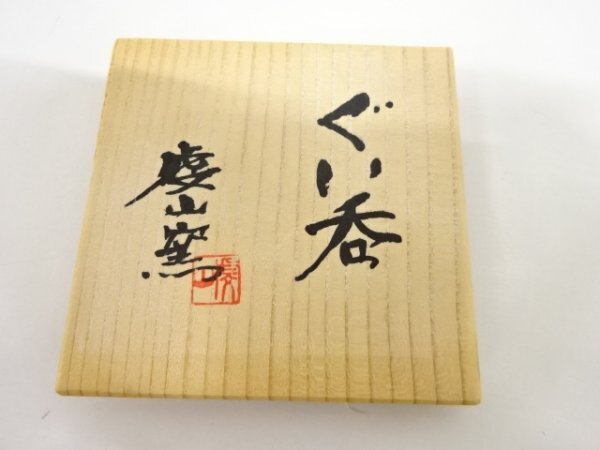 ぐい呑
山窯